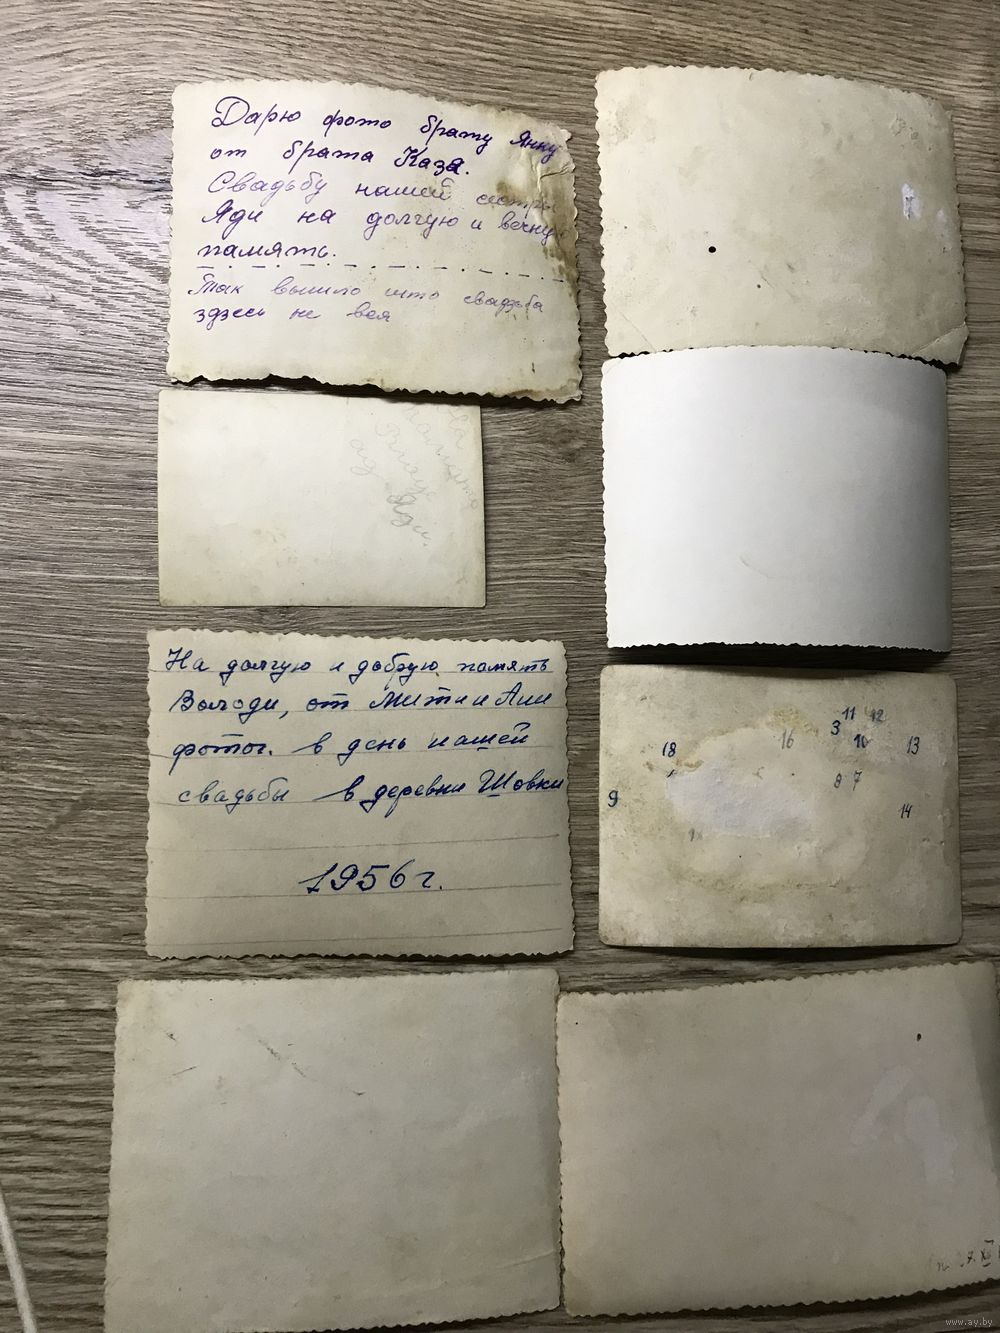 Дарю фото брату Янку
от брата Каза.
Свадьбу нашей сестры
Яди на долгую и вечну
память.
Так вышло што свадзьба
здзесь не вся
На
Яди.
На долгую и добрую память
Володи, от Мити и Ани
фотог. в день нашей
свадьбы в деревни Шовки
1956 г.
11 12
3
18 16 10 13
8 7
9
14
www.ay.by